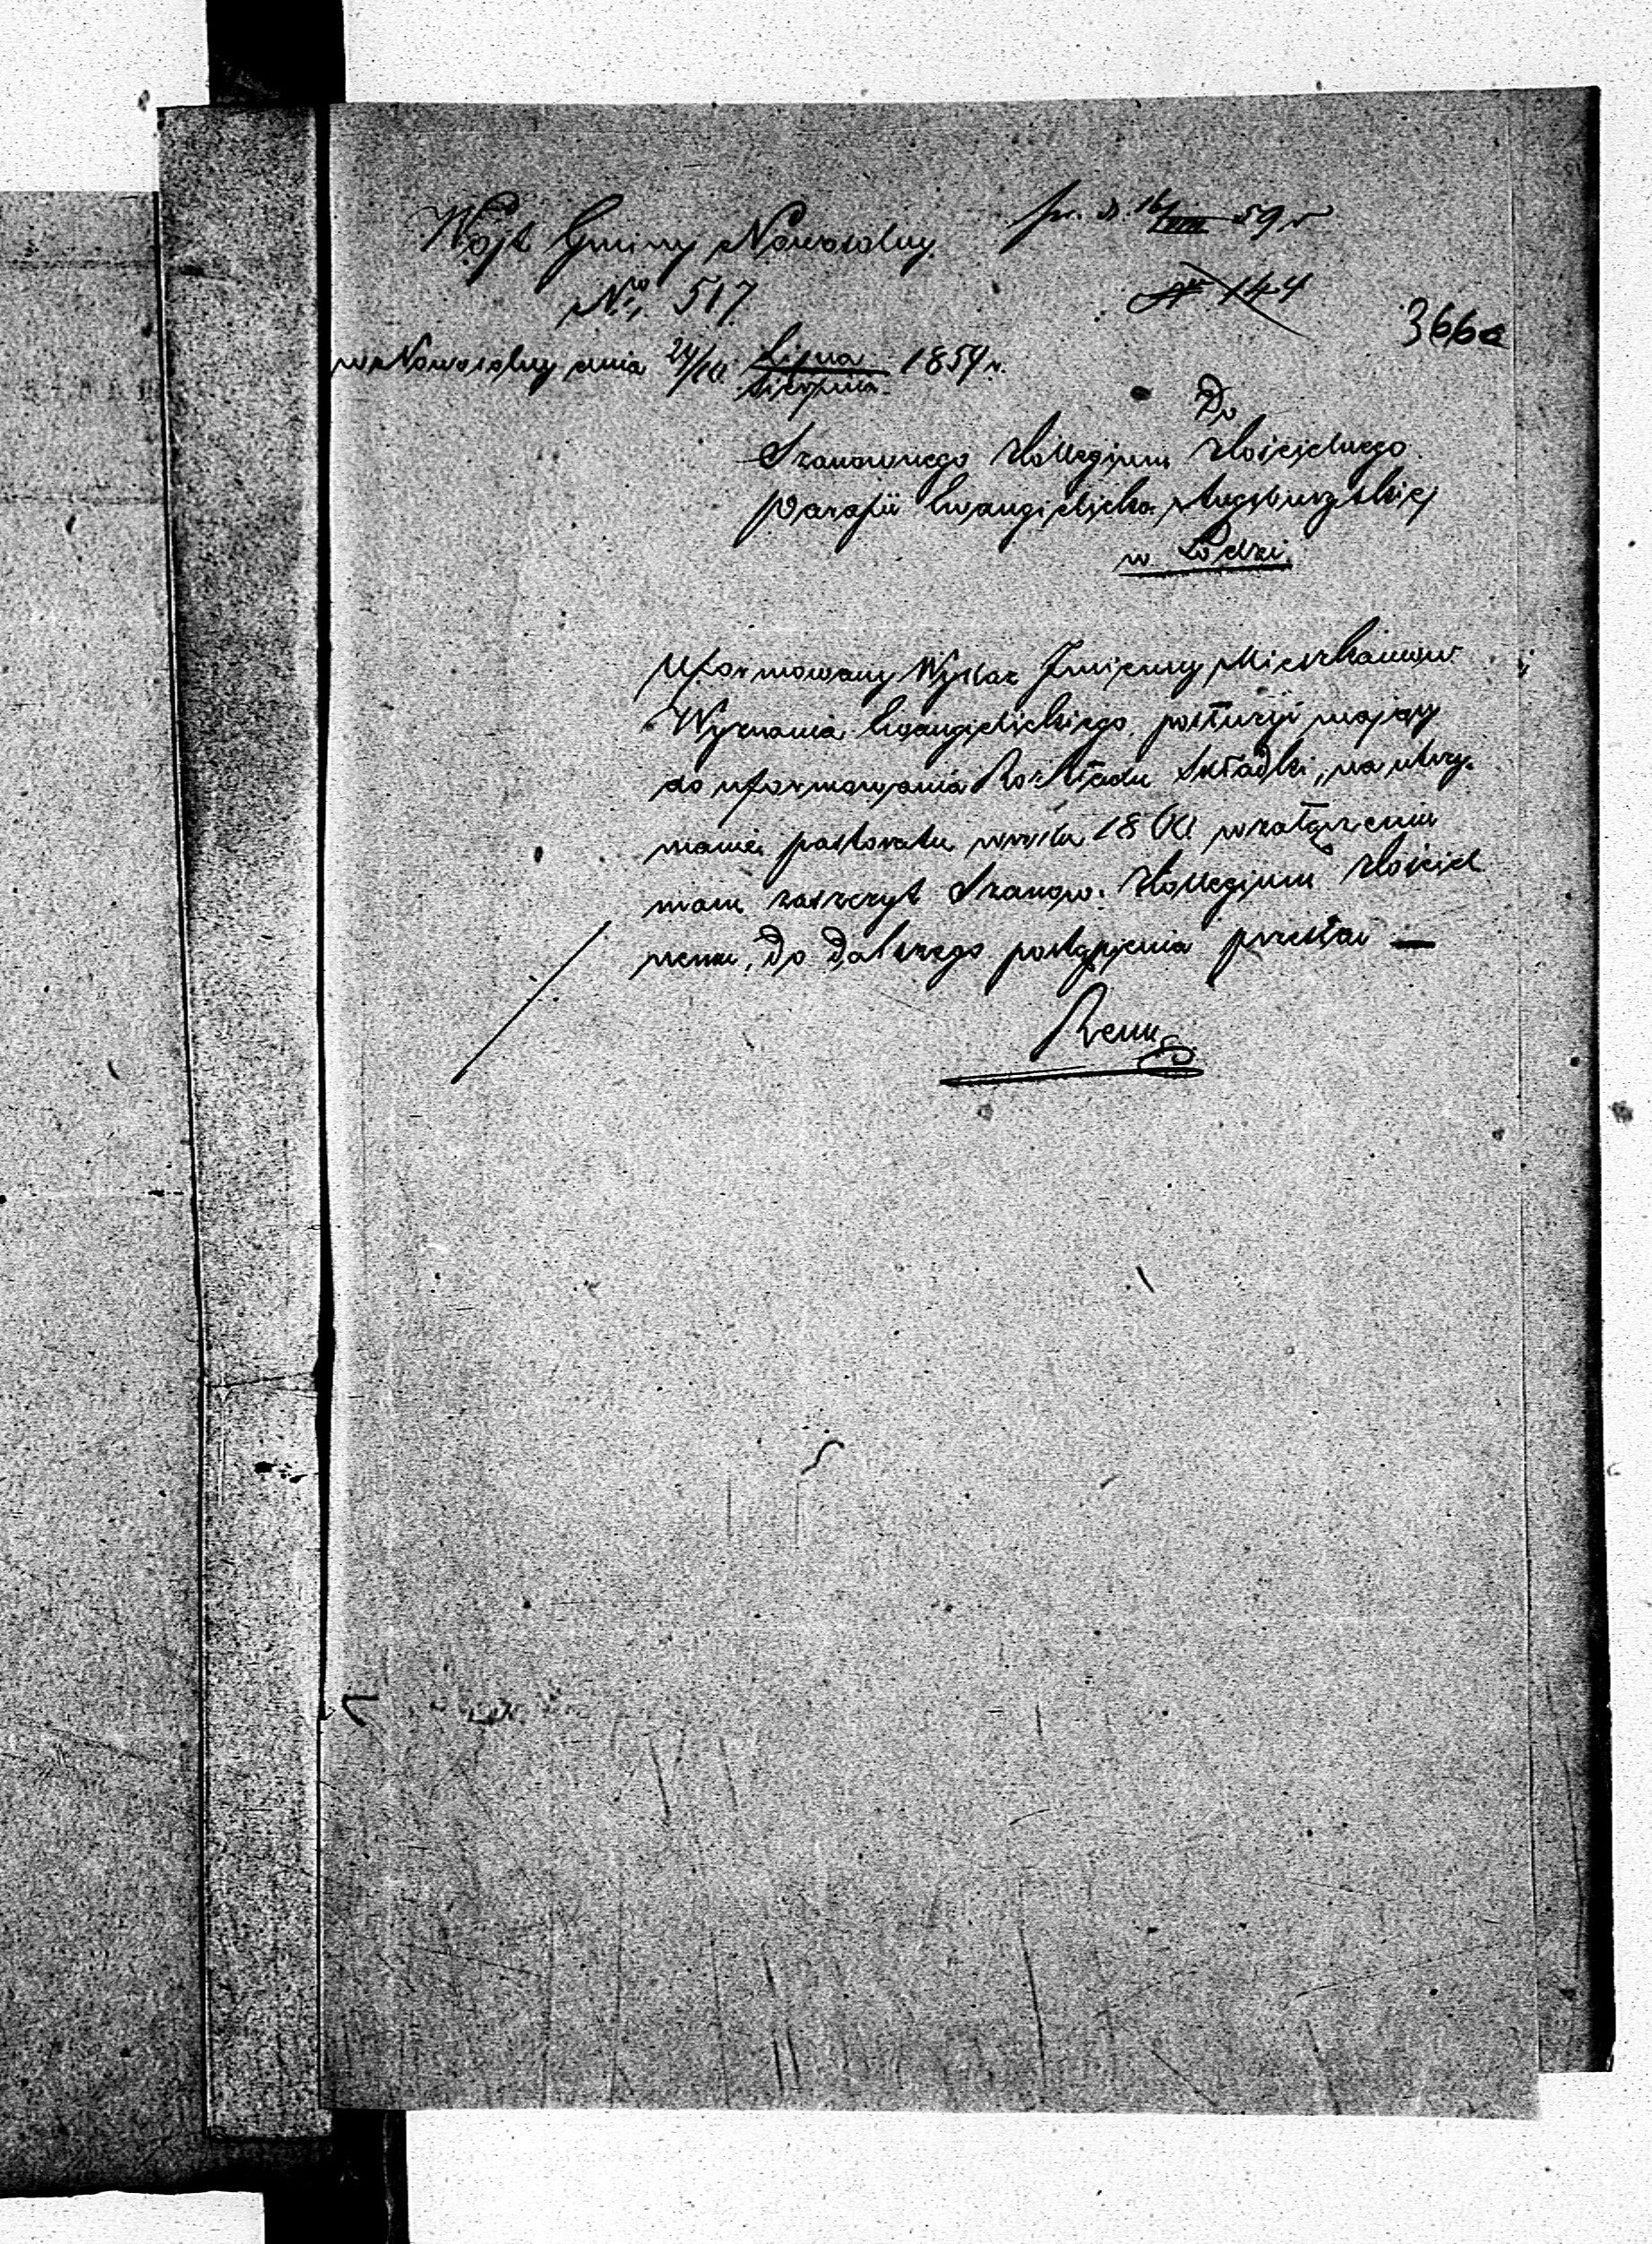 Wójt Gminy Nowosolny
pr. d. 16/VIII 59 r
N 144
No. 517
366a
w Nowosolny dnia 29/10 Lipca/Sierpnia 1859 r.
Do
Szanownego Kollegium Kościelnego
Parafii Ewangielicko Augsburgskiej
w Łodzi
Uformowany Wykaz Imienny Mieszkańców
Wyznania Ewangielickiego, posłużyć mający
do uformowania Rozkładu Składki, na utrzy-
manie pastoratu w roku 1860 w załączeniu
mam zaszczyt Szanow. Kollegium Kościel
nemu, do dalszego postąpienia przesłać —